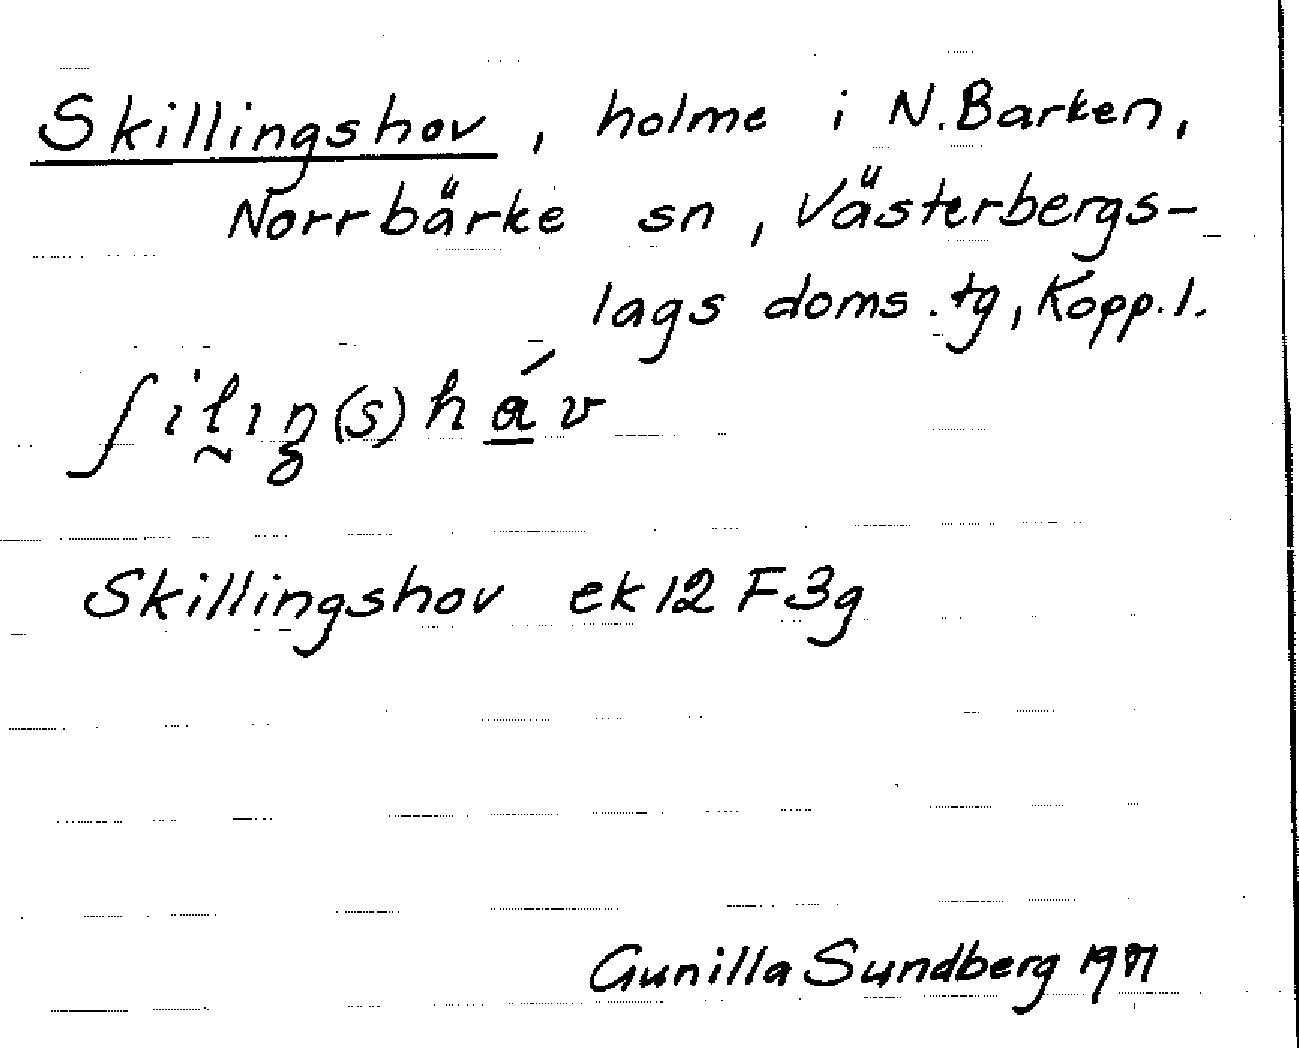 Skillingshov, holme i N. Barken,
Norrbärke sn, Västerbergs-
lags doms. tg, Kopp. l.
ʃilıŋ(s)háv
Skillingshov ek 12 F 3g
Gunilla Sundberg 1971